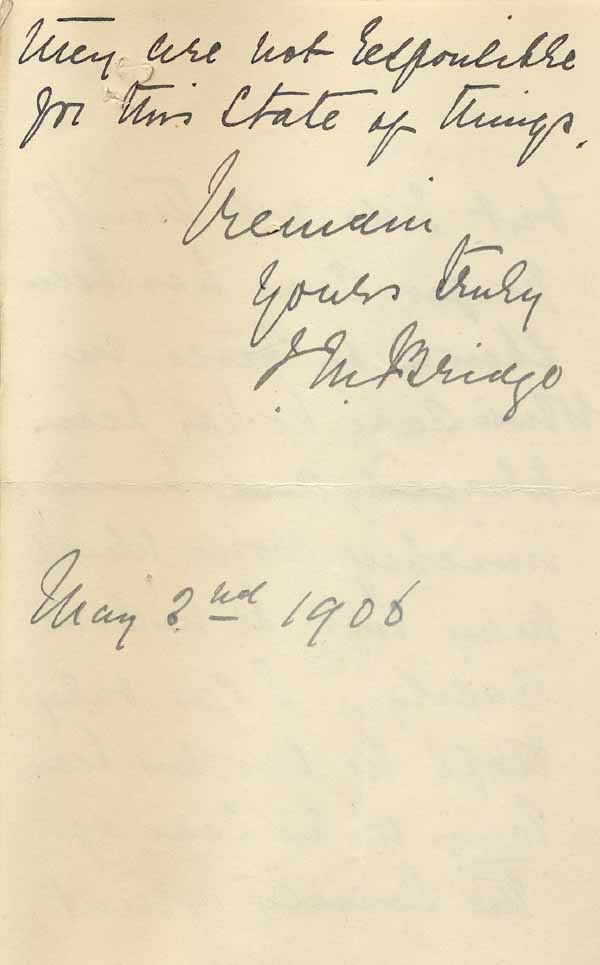 They are not responsible
for this state of things.
I remain
Yours truly
J M Bridge
May 2nd 1906